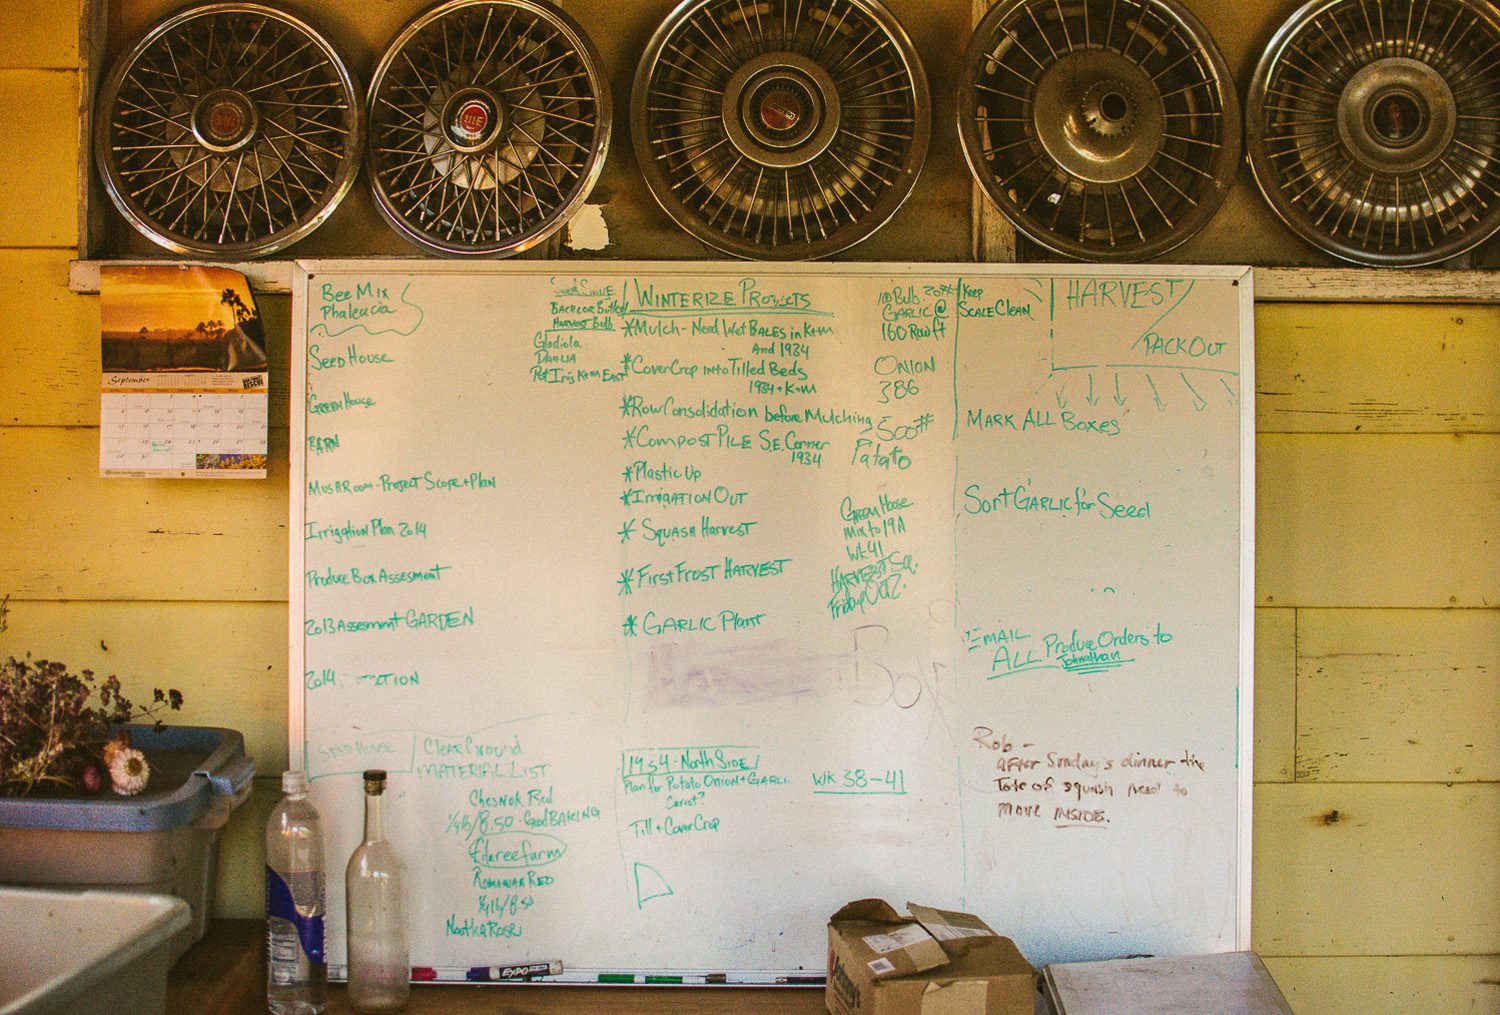 September
Bee Mix
Phaleucia
Seed House
GreenHouse
BARN
MushRoom - Project Scope + Plan
Irrigation Plan 2014
Produce Box Assesment
2013 Assesment GARDEN
2014
Bachlor Button
Harvest Bulb
Gladiola
Dahlia
Pot Iris K+m East
WINTERIZE PROJECTS
*Mulch - Need Wet BALES in K+m
And 1934
*Cover Crop into Tilled Beds
1934 + K+m
*Row Consolidation before Mulching
*Compost PILE S.E. Corner
1934
*Plastic Up
*Irrigation Out
*Squash Harvest
*First Frost HARVEST
*GARLIC Plant
Bulb
GARLIC @
160 Row ft
ONION
386
500#
Potato
GreenHouse
mix to 19A
WK 41
HARVEST Sq.
Friday Oct 2.
Box
Keep
Scale Clean
HARVEST/
PACK OUT
MARK ALL Boxes
Sort Garlic for Seed
EMAIL
ALL Produce Orders to
Johnathan
Rob -
After Sunday's dinner the
Tote of squash need to
move INSIDE.
Seed House
Clear Ground
MATERIAL LIST
Chesnok Red
1/4 lb/8.50 - Good BAKING
Filaree farm
Romanian Red
1/4 lb/8.50
Nootka Rose
1954 - North Side/
Plan for Potato Onion + Garlic
Carrot?
Till + Cover Crop
WK 38-41
EXPO